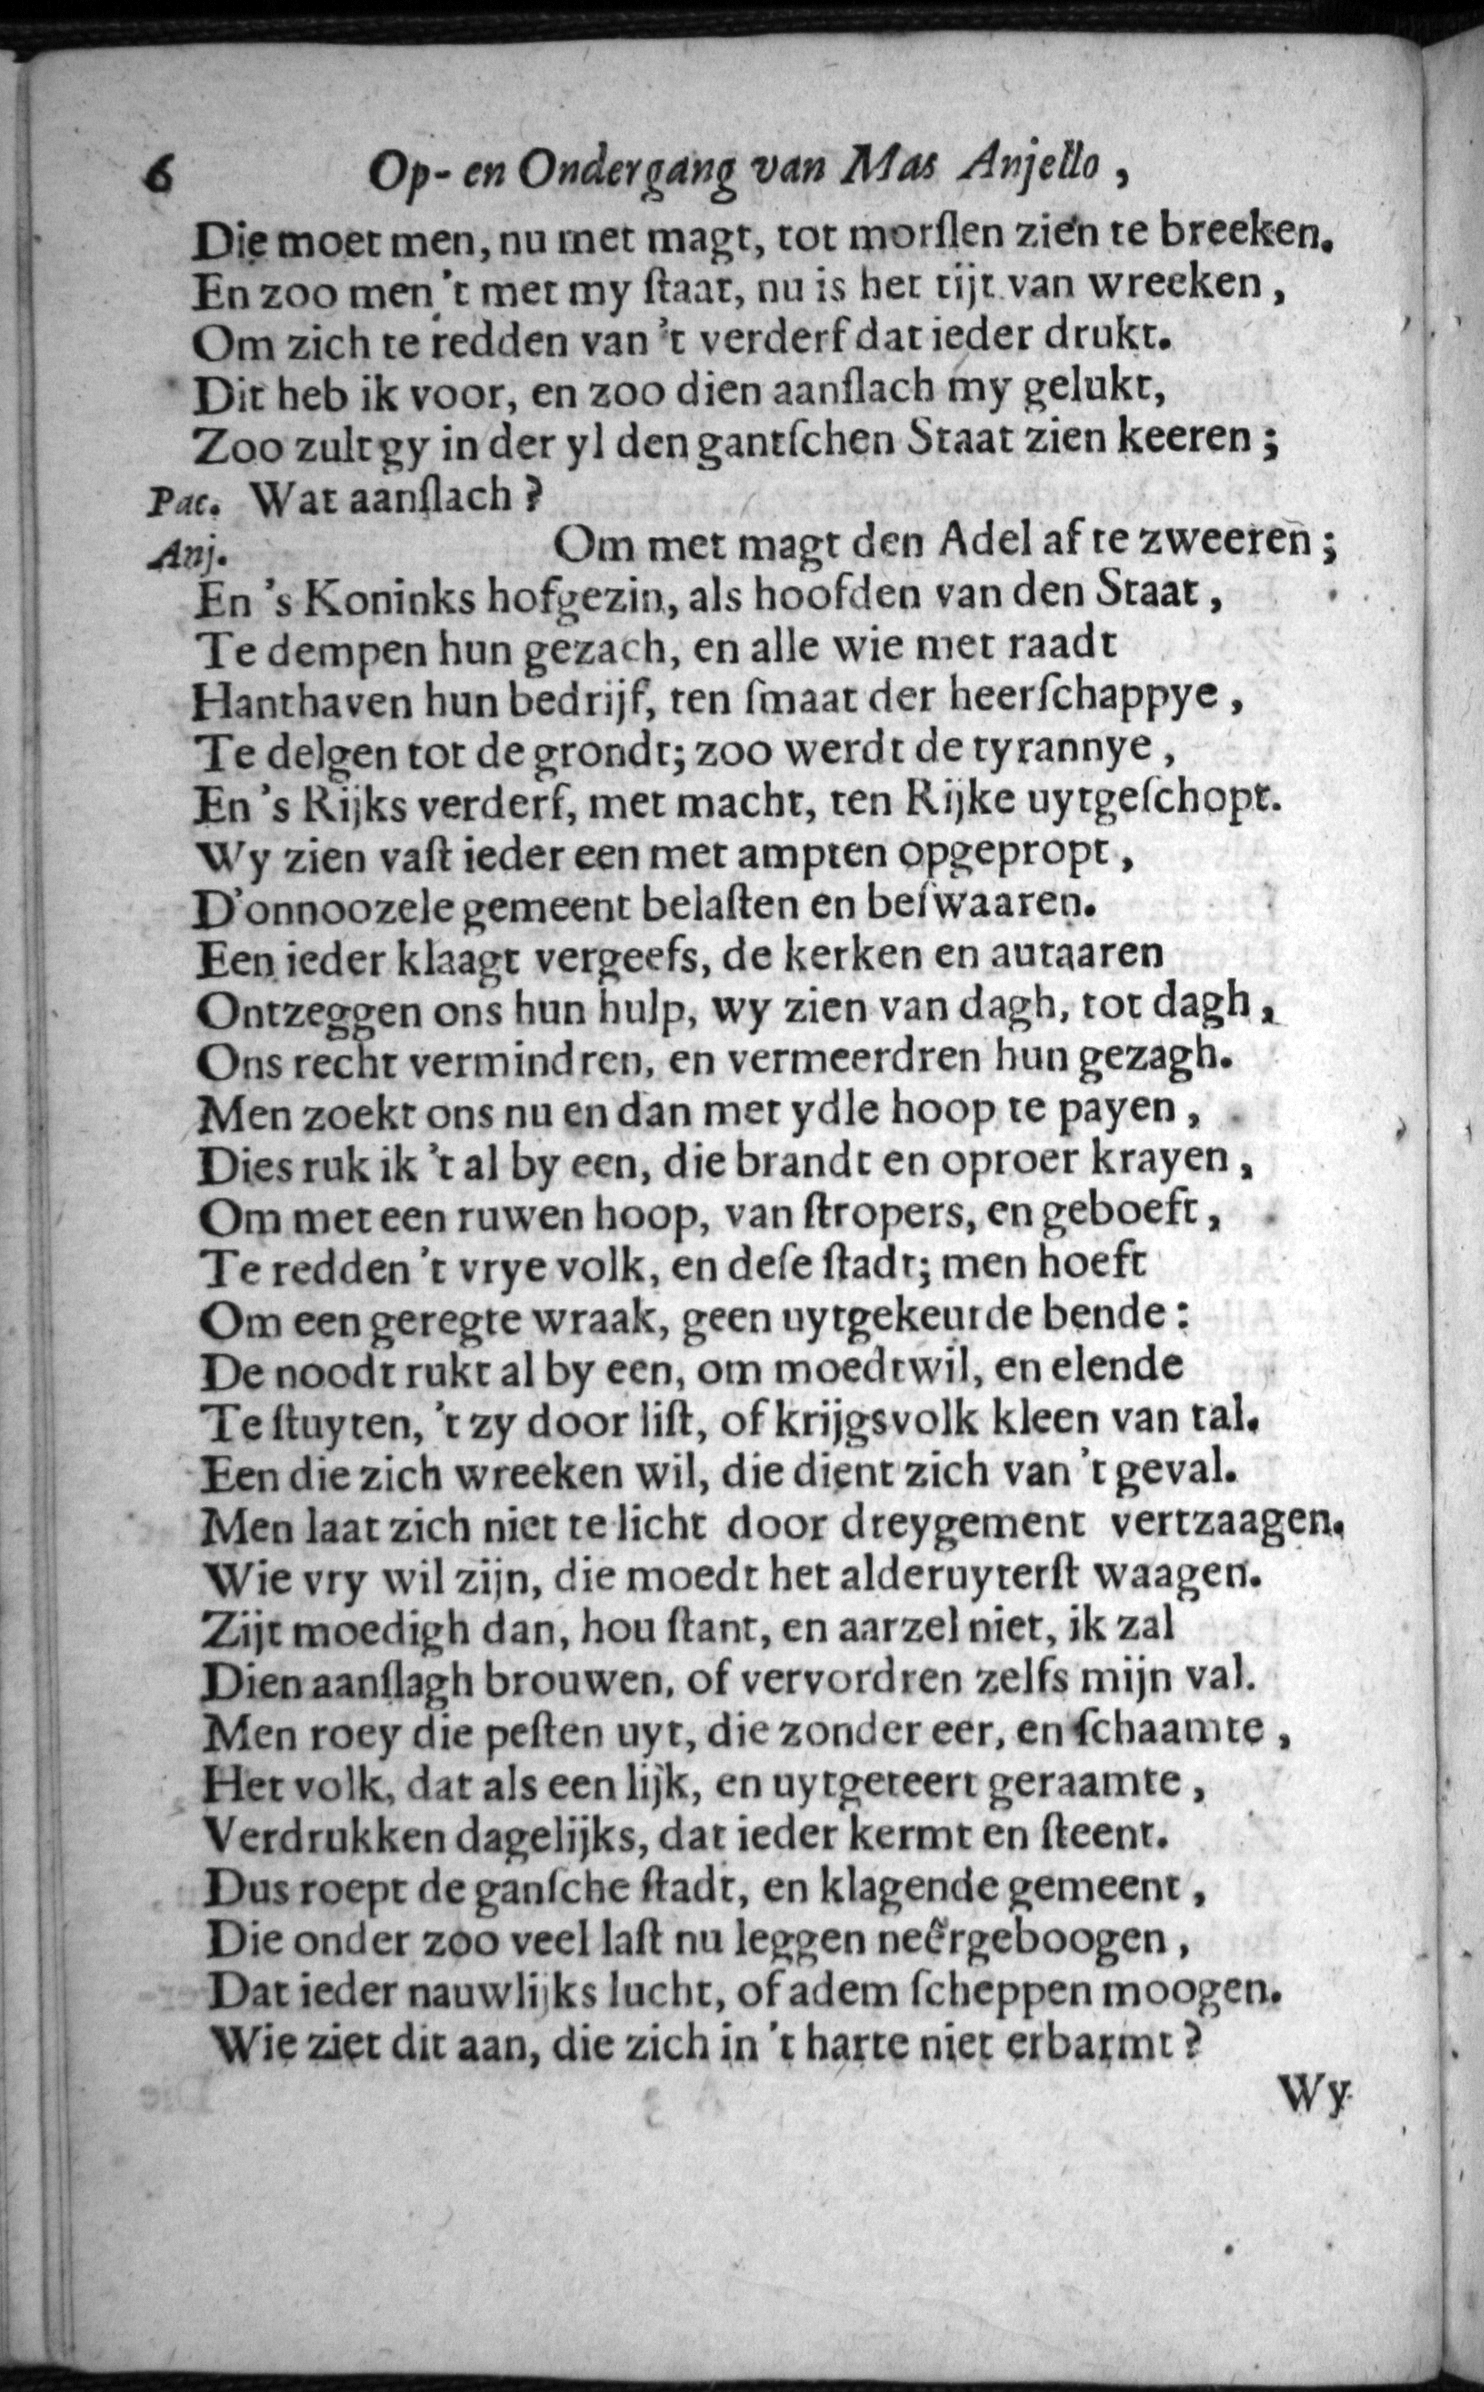 6 Op- en Ondergang van Mas Anjello,
Die moet men, nu met magt, tot morſlen zien te breeken.
En zoo men 't met my ſtaat, nu is het tijt van wreeken,
Om zich te redden van 't verderf dat ieder drukt.
Dit heb ik voor, en zoo dien aanſlach my gelukt,
Zoo zult gy in der yl den gantſchen Staat zien keeren;
Pac. Wat aanſlach?
Anj. Om met magt den Adel af te zweeren;
En 's Koninks hofgezin, als hoofden van den Staat,
Te dempen hun gezach, en alle wie met raadt
Hanthaven hun bedrijf, ten ſmaat der heerſchappye,
Te delgen tot de grondt; zoo werdt de tyrannye,
En 's Rijks verderf, met macht, ten Rijke uytgeſchopt.
Wy zien vaſt ieder een met ampten opgepropt,
D'onnoozele gemeent belaſten en beſwaaren.
Een ieder klaagt vergeefs, de kerken en autaaren
Ontzeggen ons hun hulp, wy zien van dagh, tot dagh,
Ons recht vermindren, en vermeerdren hun gezagh.
Men zoekt ons nu en dan met ydle hoop te payen,
Dies ruk ik 't al by een, die brandt en oproer krayen,
Om met een ruwen hoop, van ſtropers, en geboeft,
Te redden 't vrye volk, en deſe ſtadt; men hoeft
Om een geregte wraak, geen uytgekeurde bende:
De noodt rukt al by een, om moedtwil, en elende
Te ſtuyten, 't zy door liſt, of krijgsvolk kleen van tal.
Een die zich wreeken wil, die dient zich van 't geval.
Men laat zich niet te licht door dreygement vertzaagen.
Wie vry wil zijn, die moedt het alderuyterſt waagen.
Zijt moedigh dan, hou ſtant, en aarzel niet, ik zal
Dien aanſlagh brouwen, of vervordren zelfs mijn val.
Men roey die peſten uyt, die zonder eer, en ſchaamte,
Het volk, dat als een lijk, en uytgeteert geraamte,
Verdrukken dagelijks, dat ieder kermt en ſteent.
Dus roept de ganſche ſtadt, en klagende gemeent,
Die onder zoo veel laſt nu leggen neêrgeboogen,
Dat ieder nauwlijks lucht, of adem ſcheppen moogen.
Wie ziet dit aan, die zich in 't harte niet erbarmt?
Wy